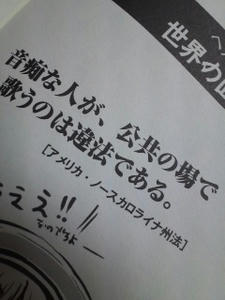 世界の
音痴な人が、公共の場で
歌うのは違法である。
[アメリカ・ノースカロライナ州法]
ええ!!